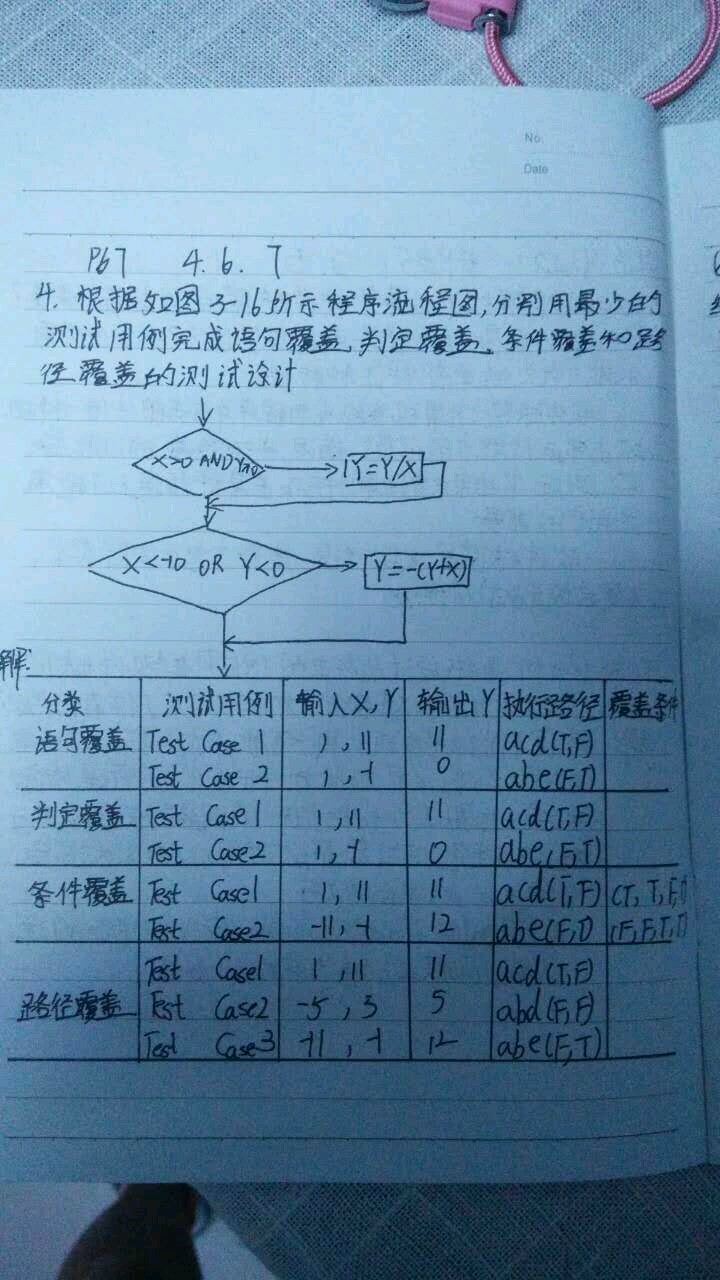 No.
Date
P67 4. 6. 7
4. 根据如图3-16所示程序流程图,分别用最少的
测试用例完成语句覆盖、判定覆盖、条件覆盖和路
径覆盖的测试设计
X>0 AND Y>0
Y=Y/X
X<-10 OR Y<0
Y=-(Y+X)
解:
分类 测试用例 输入X, Y 输出Y 执行路径 覆盖条件
语句覆盖 Test Case 1 1, 11 11 acd(T,F)
Test Case 2 1, -1 0 abe(F,T)
判定覆盖 Test Case1 1, 11 11 acd(T,F)
Test Case2 1, -1 0 abe(F,T)
条件覆盖 Test Case1 1, 11 11 acd(T,F) (T, T, F,
Test Case2 -11, -1 12 abe(F,T) (F,F,T,T)
Test Case1 1, 11 11 acd(T,F)
路径覆盖 Test Case2 -5, 5 5 abd(F,F)
Test Case3 -11, -1 12 abe(F,T)